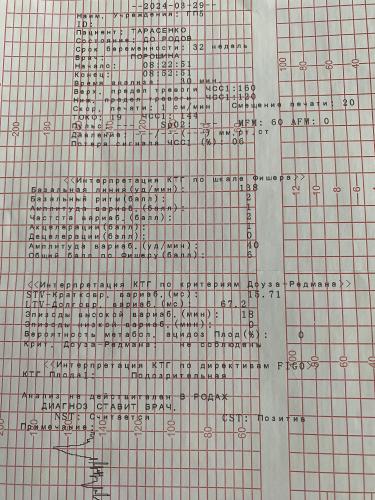 --2024-03-29--
Наим. Учреждения: ГП5
ID:
Пациент: ТАРАСЕНКО
Состояние: ДО РОДОВ
Срок беременности: 32 недель
Врач: ПОРОШИНА
Начало: 08:22:51
Конец: 08:52:51
Время анализа: 30 мин.
Верх. предел тревоги ЧСС1:160
Ниж. предел тревоги ЧСС1:
Скор. печати: 1 см/мин Смещение печати: 20
ТОКО: 19 ЧСС1: 144
Пульс: --- SpO2: --- МFM: 60 AFM: 0
Давление: ---/---(---) мм.рт.ст
Потеря сигнала ЧСС1 (%): 06
<<Интерпретация КТГ по шкале Фишера>>
Базальная линия(уд/мин): 138
Базальный ритм(балл): 2
Амплитуда вариаб.(балл): 1
Частота вариаб.(балл): 2
Акцелерации(балл): 1
Децелерации(балл): 0
Амплитуда вариаб.(уд/мин): 40
Общий балл по Фишеру(балл): 6
<<Интерпретация КТГ по критериям Доуза-Редмана>>
STV-Кратковр. вариаб.(мс): 15.71
LTV-Долговр. вариаб.(мс): 67.2
Эпизоды высокой вариаб.(мин): 18
Эпизоды низкой вариаб.(мин): 0
Вероятность метабол. ацидоз Плод(%): 0
Крит. Доуза-Редмана: не соблюдены
<<Интерпретация КТГ по директивам FIGO>>
КТГ Плода1: Подозрительная
Анализ не действителен В РОДАХ
ДИАГНОЗ СТАВИТ ВРАЧ.
NST: Считается CST: Позитив
Примечание: